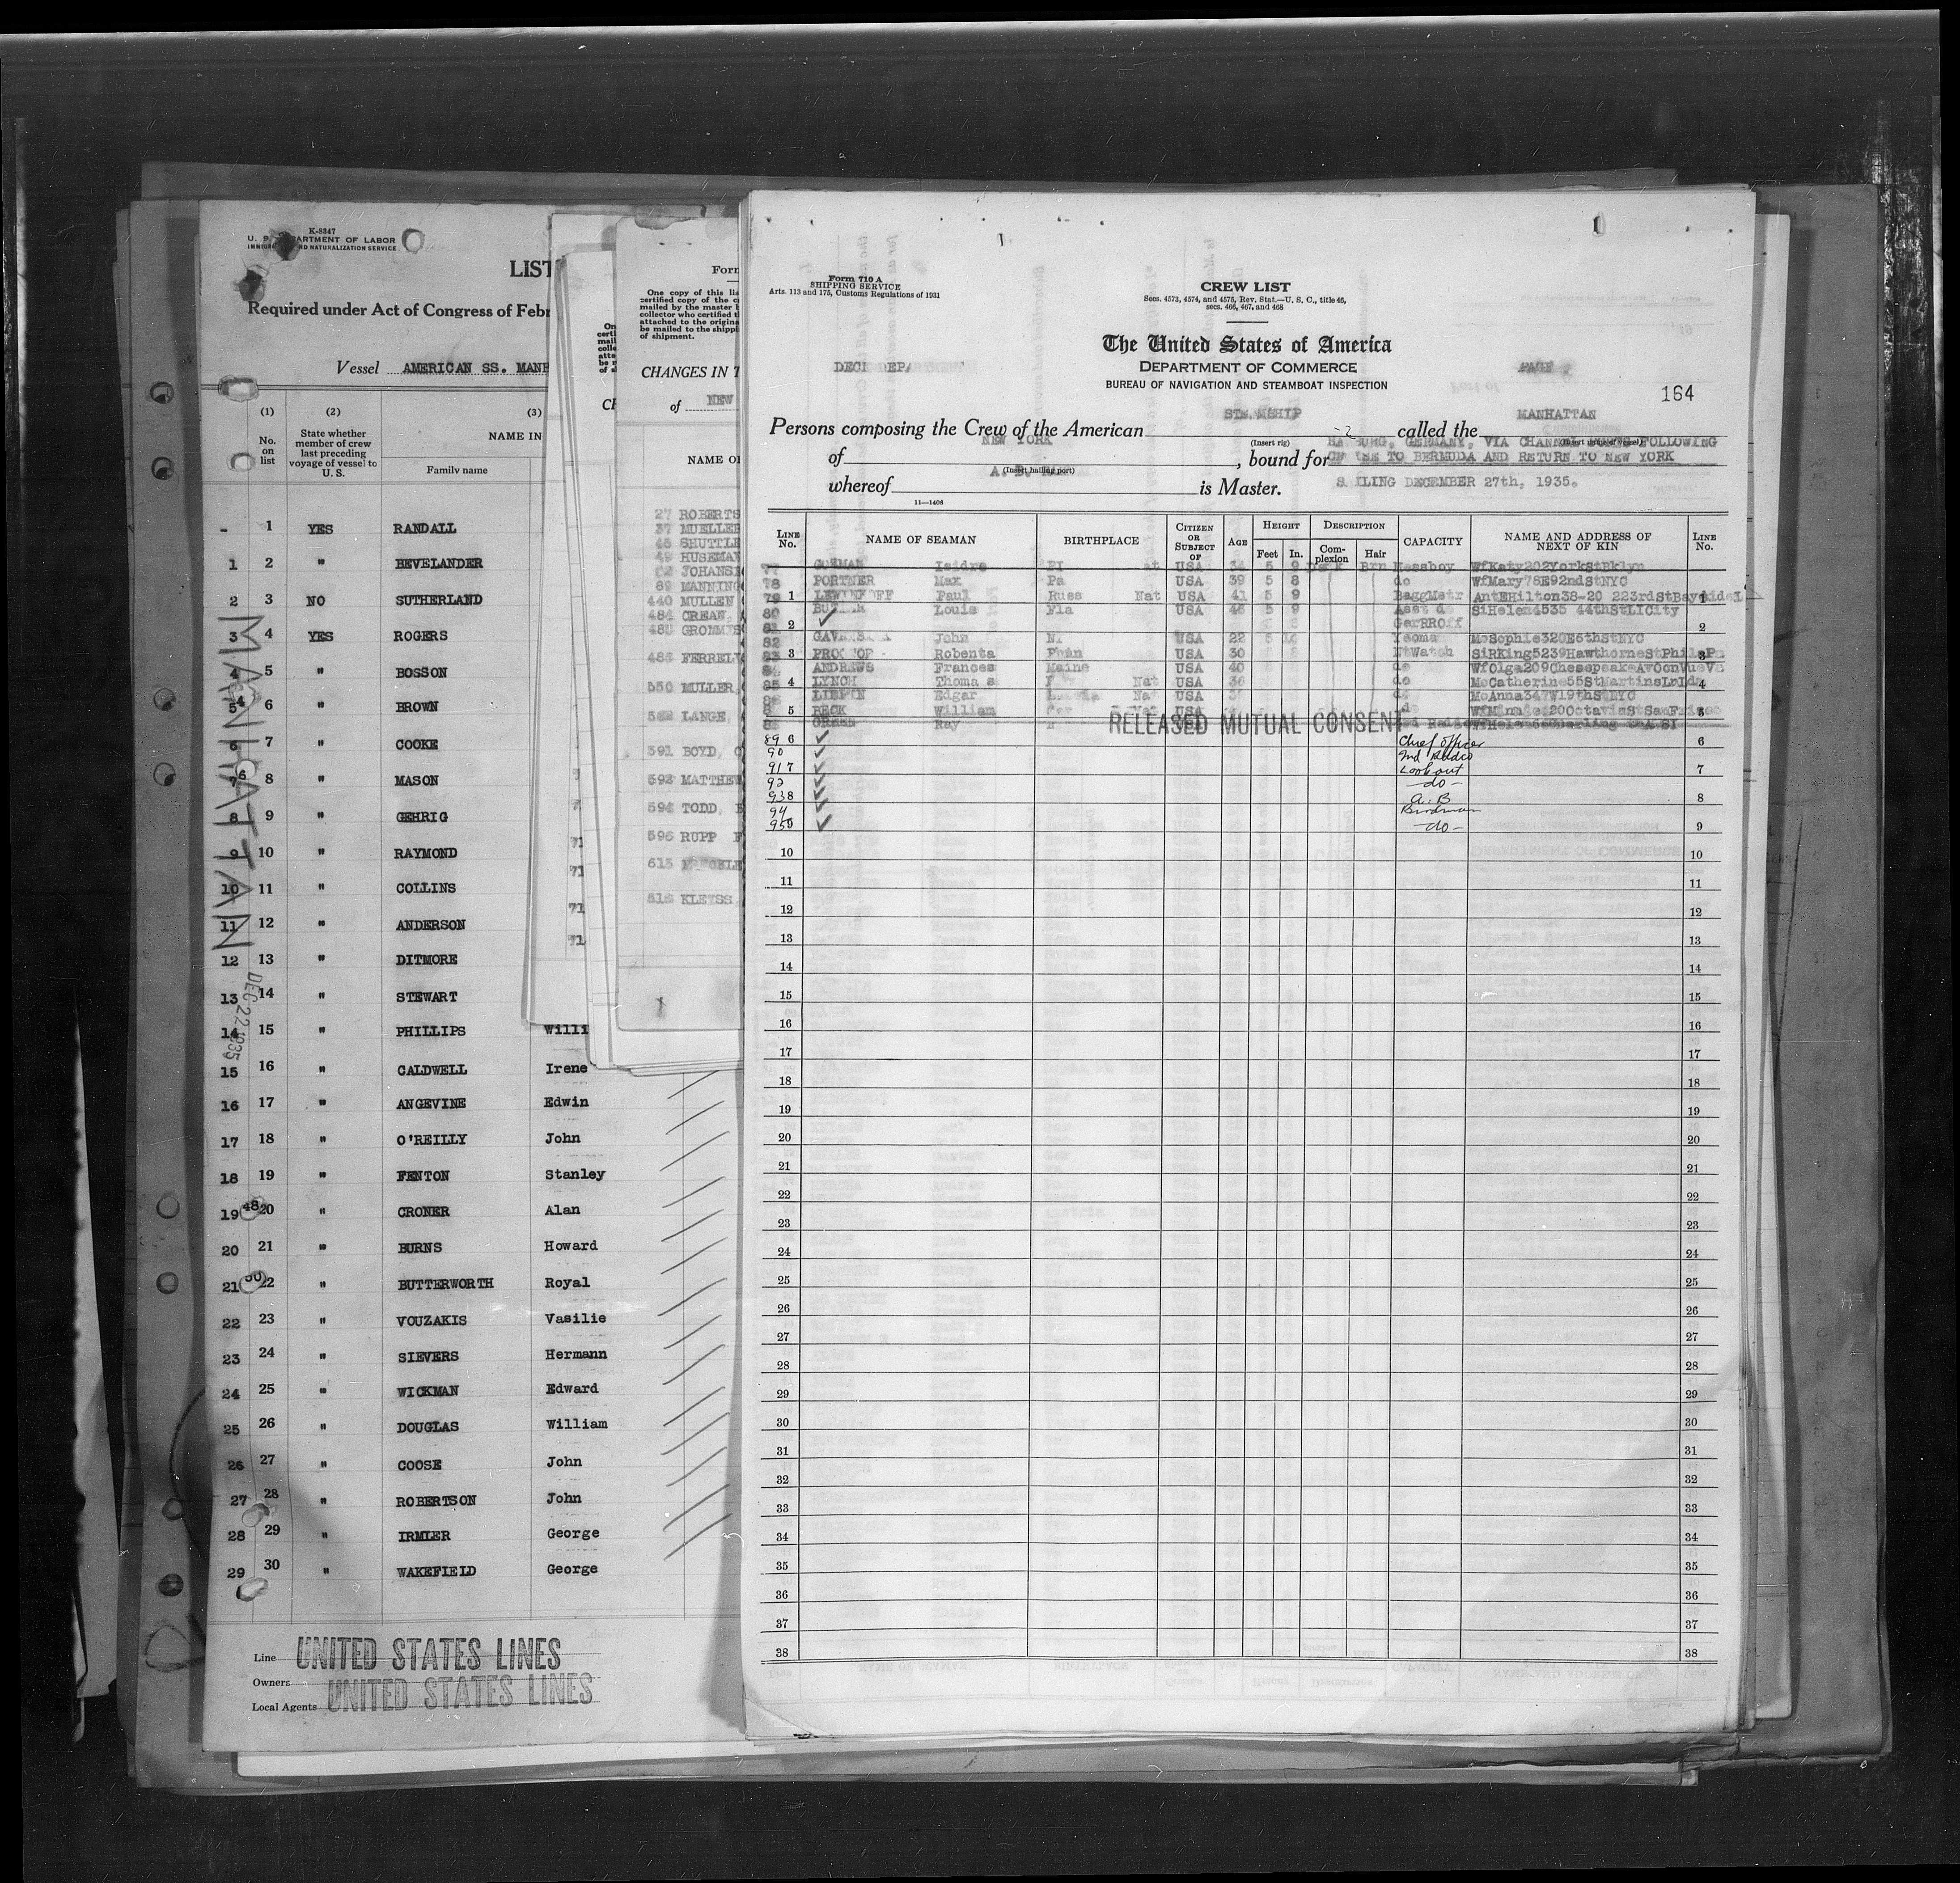 K-8347
U. S. DEPARTMENT OF LABOR
IMMIGRATION AND NATURALIZATION SERVICE
LIST
Required under Act of Congress of Febr
Vessel AMERICAN SS. MANH
(1) (2) (3)
No. on list
State whether member of crew last preceding voyage of vessel to U. S.
NAME IN
Family name
- 1 YES RANDALL
1 2 " BEVELANDER
2 3 NO SUTHERLAND
3 4 YES ROGERS
4 5 " BOSSON
5 6 " BROWN
6 7 " COOKE
7 8 " MASON
8 9 " GEHRIG
9 10 " RAYMOND
10 11 " COLLINS
11 12 " ANDERSON
12 13 " DITMORE
13 14 " STEWART
14 15 " PHILLIPS Willi
15 16 " CALDWELL Irene
16 17 " ANGEVINE Edwin
17 18 " O'REILLY John
18 19 " FENTON Stanley
19 20 " CRONER Alan
20 21 " BURNS Howard
21 22 " BUTTERWORTH Royal
22 23 " VOUZAKIS Vasilie
23 24 " SIEVERS Hermann
24 25 " WICKMAN Edward
25 26 " DOUGLAS William
26 27 " COOSE John
27 28 " ROBERTSON John
28 29 " IRMLER George
29 30 " WAKEFIELD George
MANHATTAN
DEC 22 1935
Line UNITED STATES LINES
Owners
Local Agents UNITED STATES LINES
Form
One copy of this lis
certified copy of the c
mailed by the master
collector who certified t
attached to the origina
be mailed to the shippi
of shipment.
CHANGES IN T
of NEW
NAME O
27 ROBERTS
37 MUELLER
45 SHUTTLE
49 HUSEMAN
JOHANS
69 MANNING
440 MULLEN
484 CREAN,
485 GROMM
486 FERREL
550 MULLER,
582 LANGE,
591 BOYD,
592 MATTHEW
594 TODD,
596 RUPP F
615
616 KLEISS
Form 710 A
SHIPPING SERVICE
Arts. 113 and 175, Customs Regulations of 1931
CREW LIST
Secs. 4573, 4574, and 4575, Rev. Stat.—U. S. C., title 46,
secs. 466, 467, and 468
The United States of America
DEPARTMENT OF COMMERCE
BUREAU OF NAVIGATION AND STEAMBOAT INSPECTION
DECK DEPARTMENT
PAGE
164
Persons composing the Crew of the American STEAMSHIP called the MANHATTAN
(Insert rig) (Insert name of vessel)
of NEW YORK, bound for HAMBURG, GERMANY, VIA CHANNEL FOLLOWING
(Insert hailing port) CRUISE TO BERMUDA AND RETURN TO NEW YORK
whereof is Master. SAILING DECEMBER 27th, 1935.
11—1406
LINE No. NAME OF SEAMAN BIRTHPLACE CITIZEN OR SUBJECT OF AGE HEIGHT Feet In. DESCRIPTION Complexion Hair CAPACITY NAME AND ADDRESS OF NEXT OF KIN LINE No.
77 GUZMAN Isidro PI USA 34 5 9 Dark Brn Messboy WfKaty202YorkStBklyn
78 PORTNER Max Pa USA 39 5 8 do WfMary78E92ndStNYC
79 Paul Russ Nat USA 41 5 9 BaggMstr AntEHilton38-20 223rdStBaysideLI
80 Louis Fla USA 46 5 9 Asst do SiHelen4535 44thStLICity
81 GarRROff
82 John USA 22 5 Yeoman MoSophie320E6thStNYC
83 Robenta USA 30 NtWatch SiRKing5239HawthorneStPhilaPa
84 ANDREWS Frances Maine USA 40 do
85 LYNCH Thomas Nat USA 36 do McCatherine55StMartinsLn
Edgar Nat USA do MoAnna347W19thStNYC
BECK William Nat USA do WfMinnie1200OctaviaStSanFrisco
GREEN Ray
RELEASED MUTUAL CONSENT
89 6 ✓ Chief Officer 6
90 ✓ 2nd Radio
91 7 ✓ Lookout 7
92 ✓ -do-
93 8 ✓ A. B 8
94 ✓
95 9 ✓ -do- 9
10 10
11 11
12 12
13 13
14 14
15 15
16 16
17 17
18 18
19 19
20 20
21 21
22 22
23 23
24 24
25 25
26 26
27 27
28 28
29 29
30 30
31 31
32 32
33 33
34 34
35 35
36 36
37 37
38 38